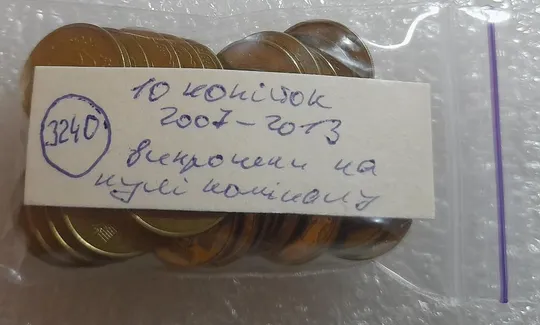 10 копійок
3240
2007-2013
викрошки на
нулі номіналу